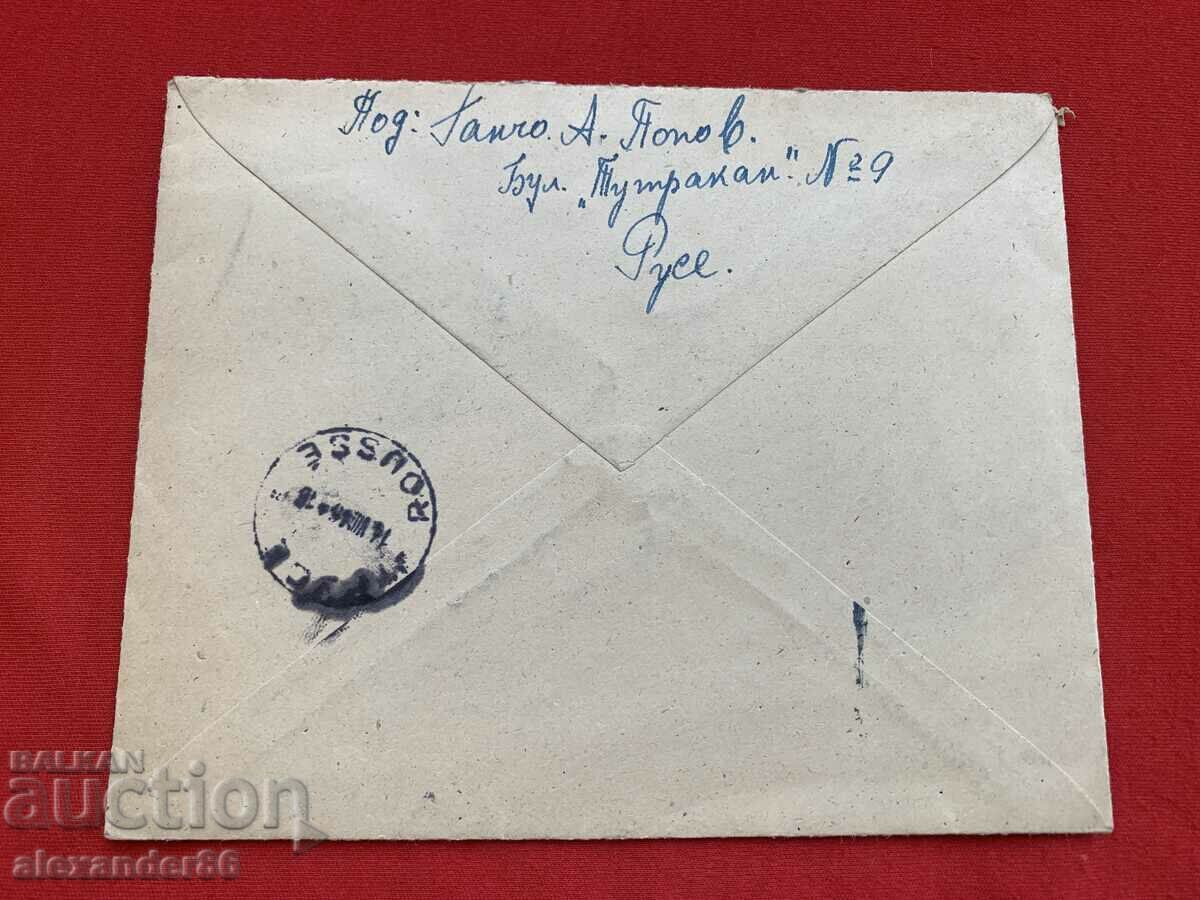 Под: Ганчо. А. Попов.
Бул. „Тутракан". № 9
Русе.
ROUSSE
BALKAN
auction
alexander86